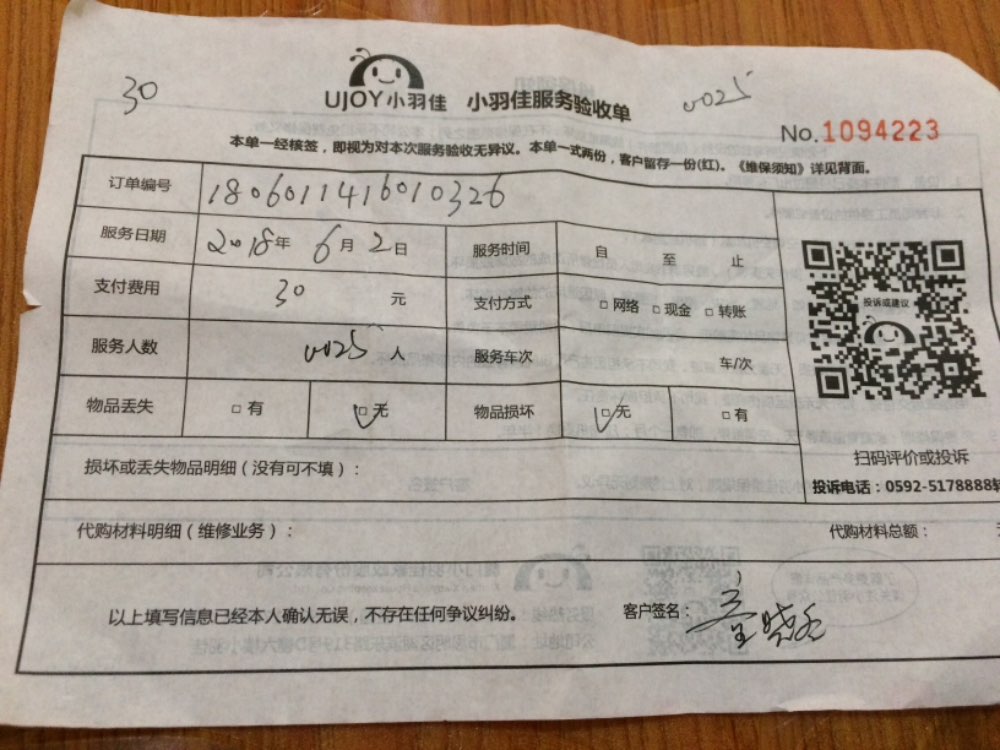 30
0025
UJOY小羽佳 小羽佳服务验收单
No.1094223
本单一经核签，即视为对本次服务验收无异议。本单一式两份，客户留存一份(红)。《维保须知》详见背面。
订单编号 1806011416010326
服务日期 2018年 6月 2日 服务时间 自 至 止
支付费用 30 元 支付方式 □网络 □现金 □转账
服务人数 0025 人 服务车次 车/次
物品丢失 □有 □无 物品损坏 □无 □有
投诉或建议
扫码评价或投诉
投诉电话：0592-5178888转
损坏或丢失物品明细（没有可不填）：
代购材料明细（维修业务）： 代购材料总额：
以上填写信息已经本人确认无误，不存在任何争议纠纷。 客户签名：